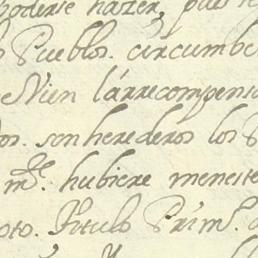 poderse hazer, pues
Pueblos. circumbe
Nien lárrecompens
os. son herederos los
m.e hubiere meneste
oto. Titulo Prim.